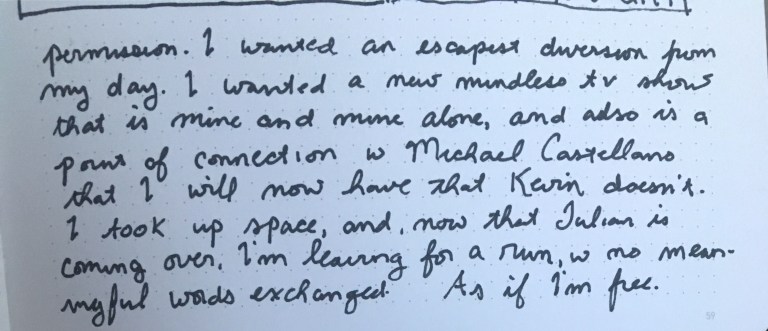 permission. I wanted an escapist diversion from
my day. I wanted a new mindless tv show
that is mine and mine alone, and also is a
point of connection w Michael Castellano
that I will now have that Kevin doesn't.
I took up space, and, now that Julian is
coming over, I'm leaving for a run, w no mean-
ingful words exchanged. As if I'm free.
59